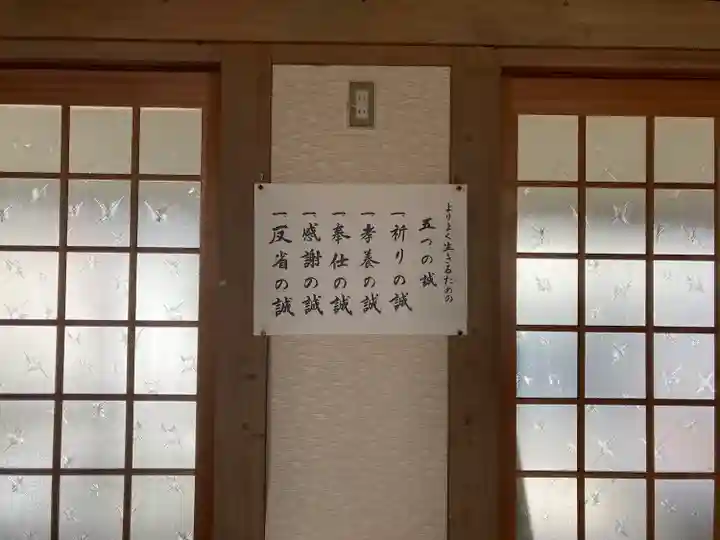 よりよく生きるための
五つの誠
一祈りの誠
一孝養の誠
一奉仕の誠
一感謝の誠
一反省の誠